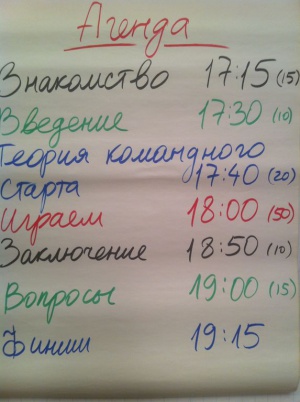 Агенда
Знакомство 17:15 (15)
Введение 17:30 (10)
Теория командного
Старта 17:40 (20)
Играем 18:00 (50)
Заключение 18:50 (10)
Вопросы 19:00 (15)
Финиш 19:15